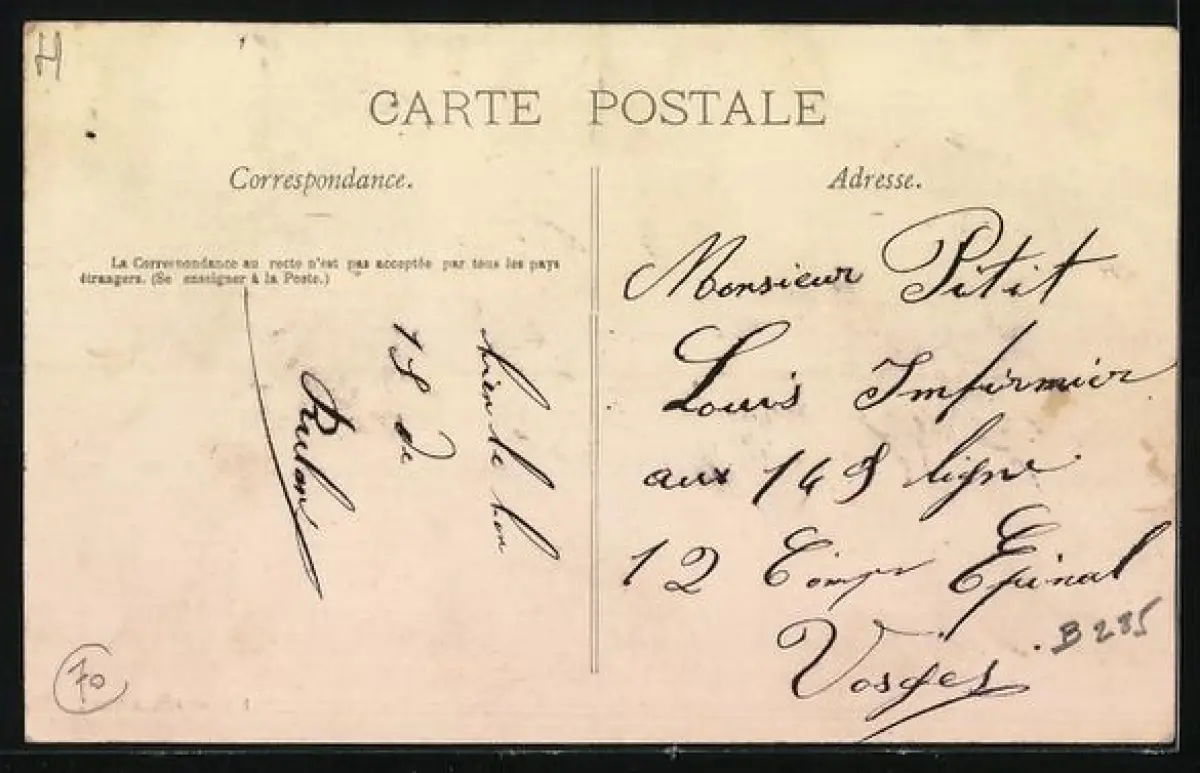 H
CARTE POSTALE
Correspondance.
Adresse.
La Correspondance au recto n'est pas acceptée par tous les pays
étrangers. (Se enseigner à la Poste.)
bien le bon
15 de
Monsieur Pitit
Louis Infirmier
aux 149 ligne
12 Comp Epinal
Vosges
B 285
70